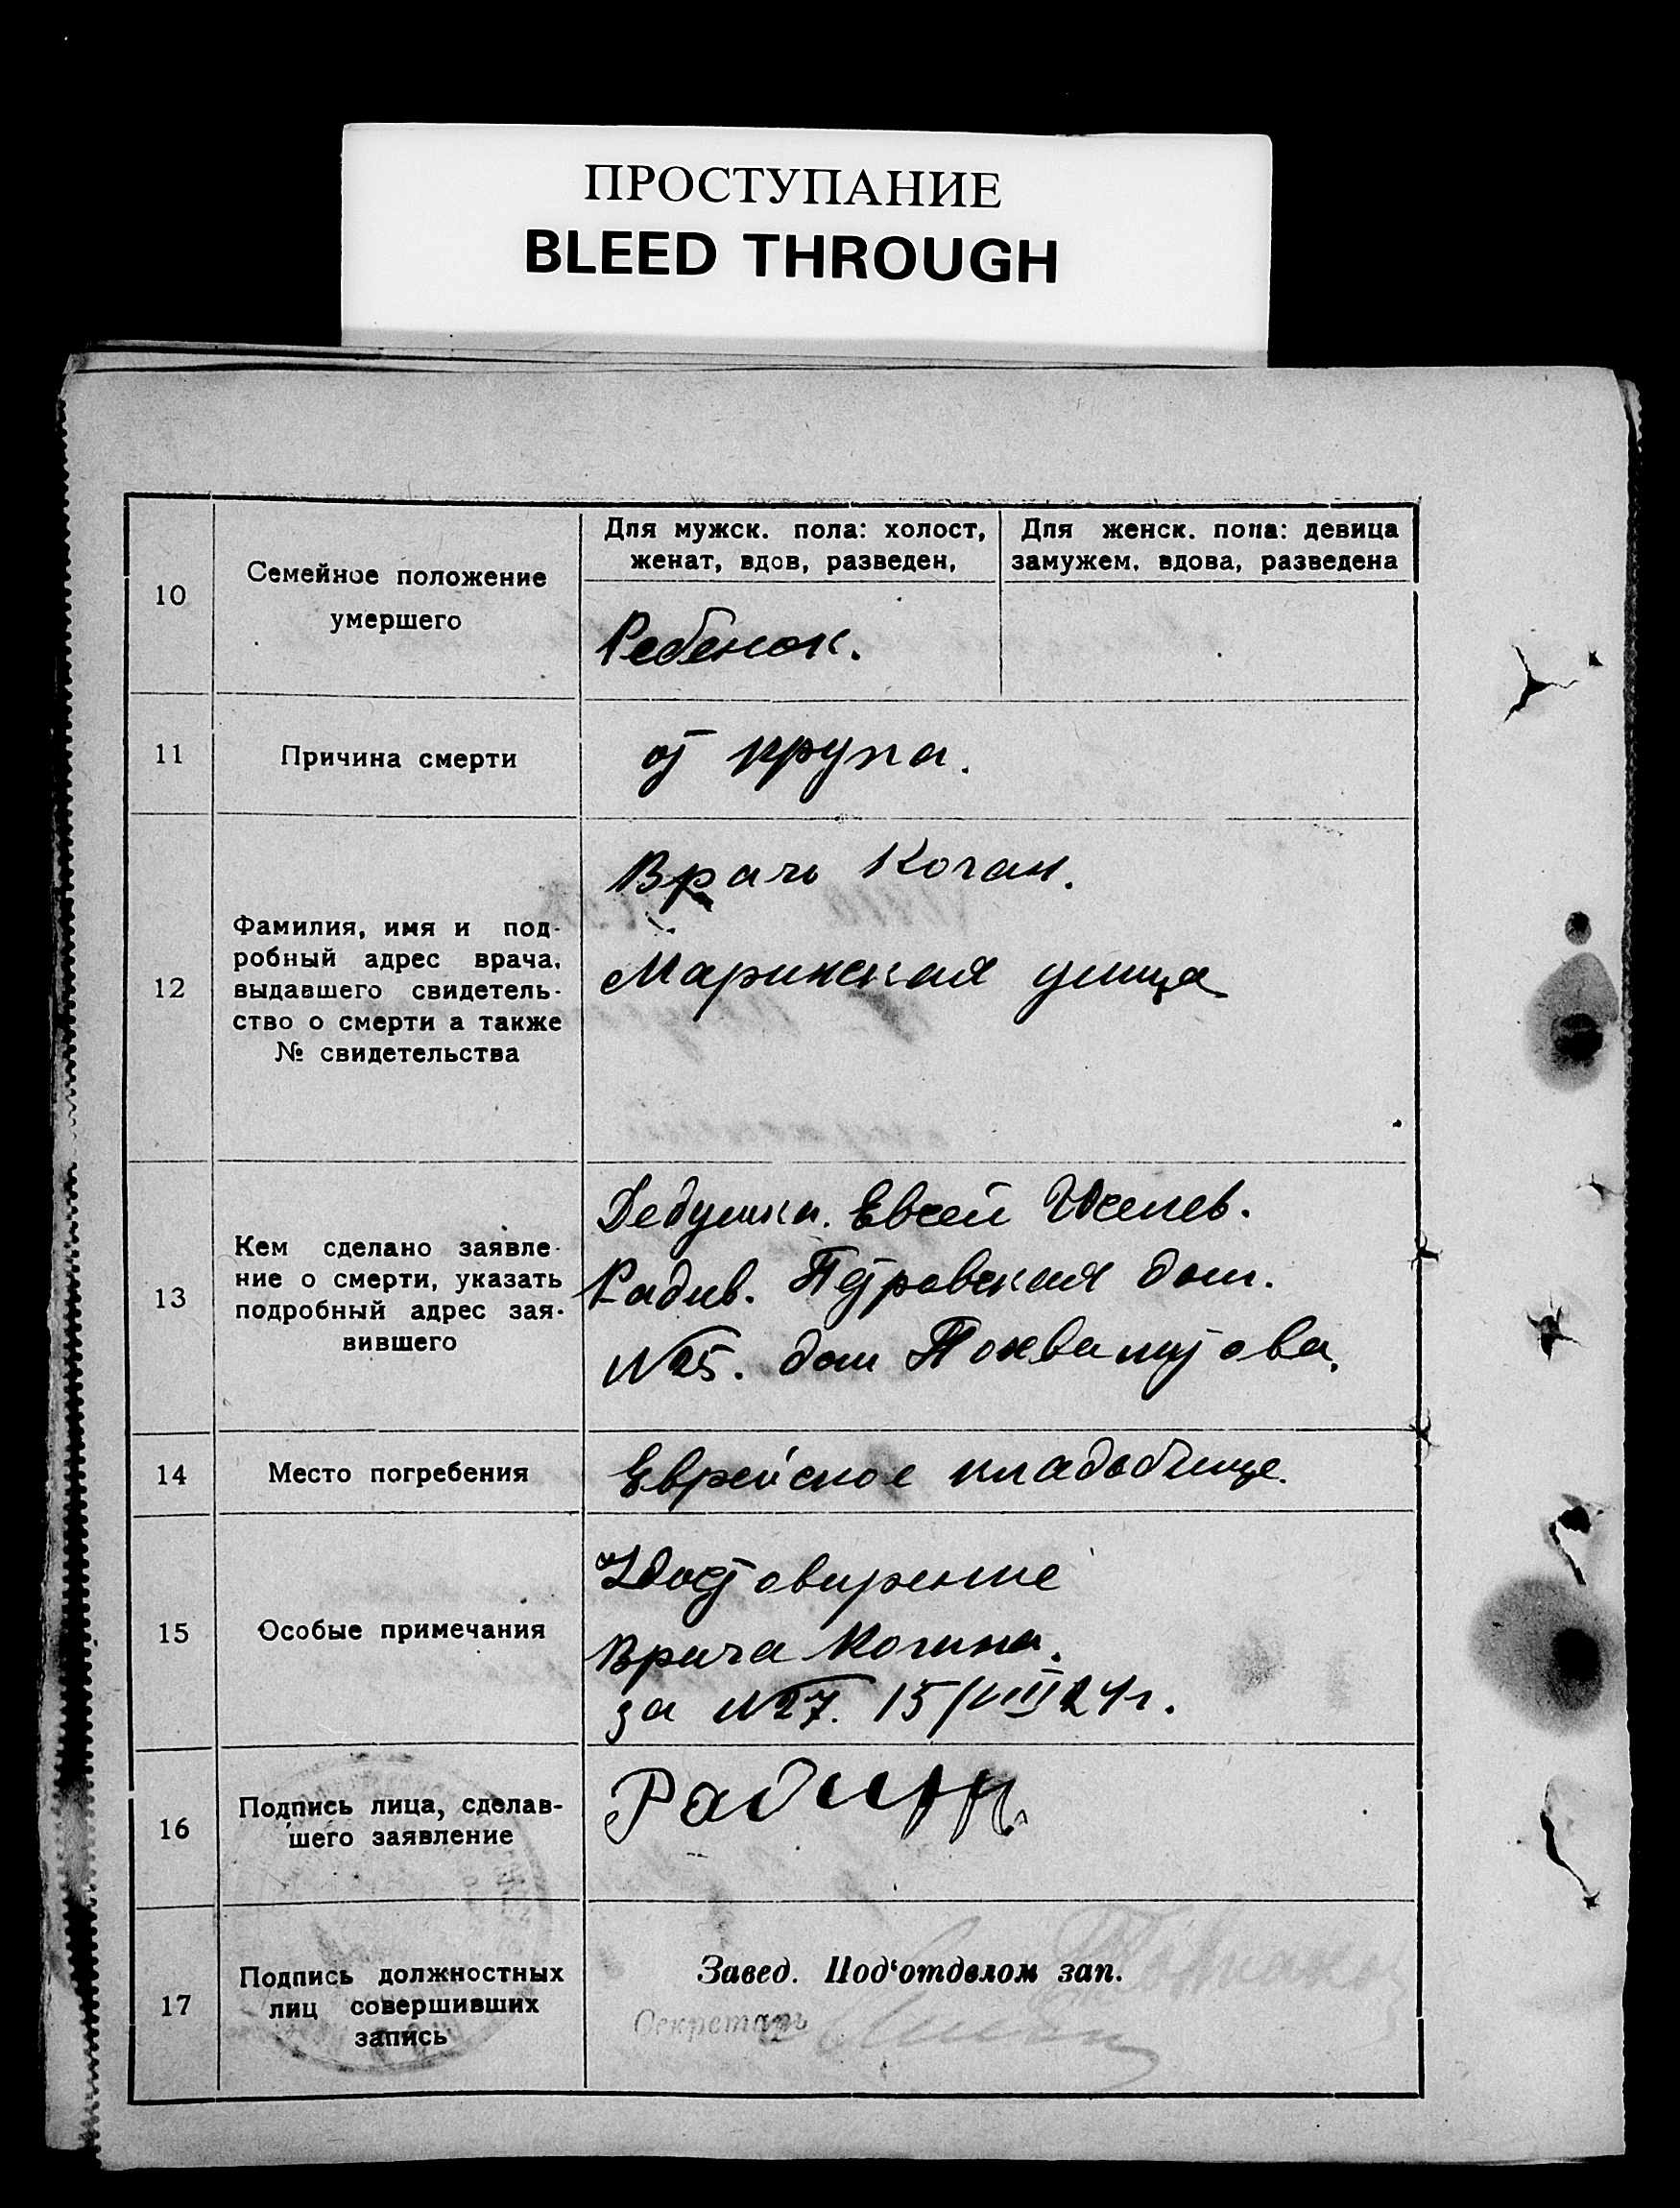 ПРОСТУПАНИЕ
BLEED THROUGH
10
Семейное положение
умершего
Для мужск. пола: холост,
женат, вдов, разведен,
Для женск. пола: девица
замужем, вдова, разведена
Ребенок.
11
Причина смерти
от крупа.
12
Фамилия, имя и под-
робный адрес врача,
выдавшего свидетель-
ство о смерти а также
№ свидетельства
Врачь Коган.
Маринская улица
13
Кем сделано заявле-
ние о смерти, указать
подробный адрес зая-
вившего
Дедушка. Евсей
Петровская дом.
№25. дом
14
Место погребения
Еврейское кладбище.
15
Особые примечания
Врача Когана.
за №27. 15/VIII 24г.
16
Подпись лица, сделав-
шего заявление
Радин
17
Подпись должностных
лиц совершивших
запись
Завед. Под‘отделом зап.
Секретарь